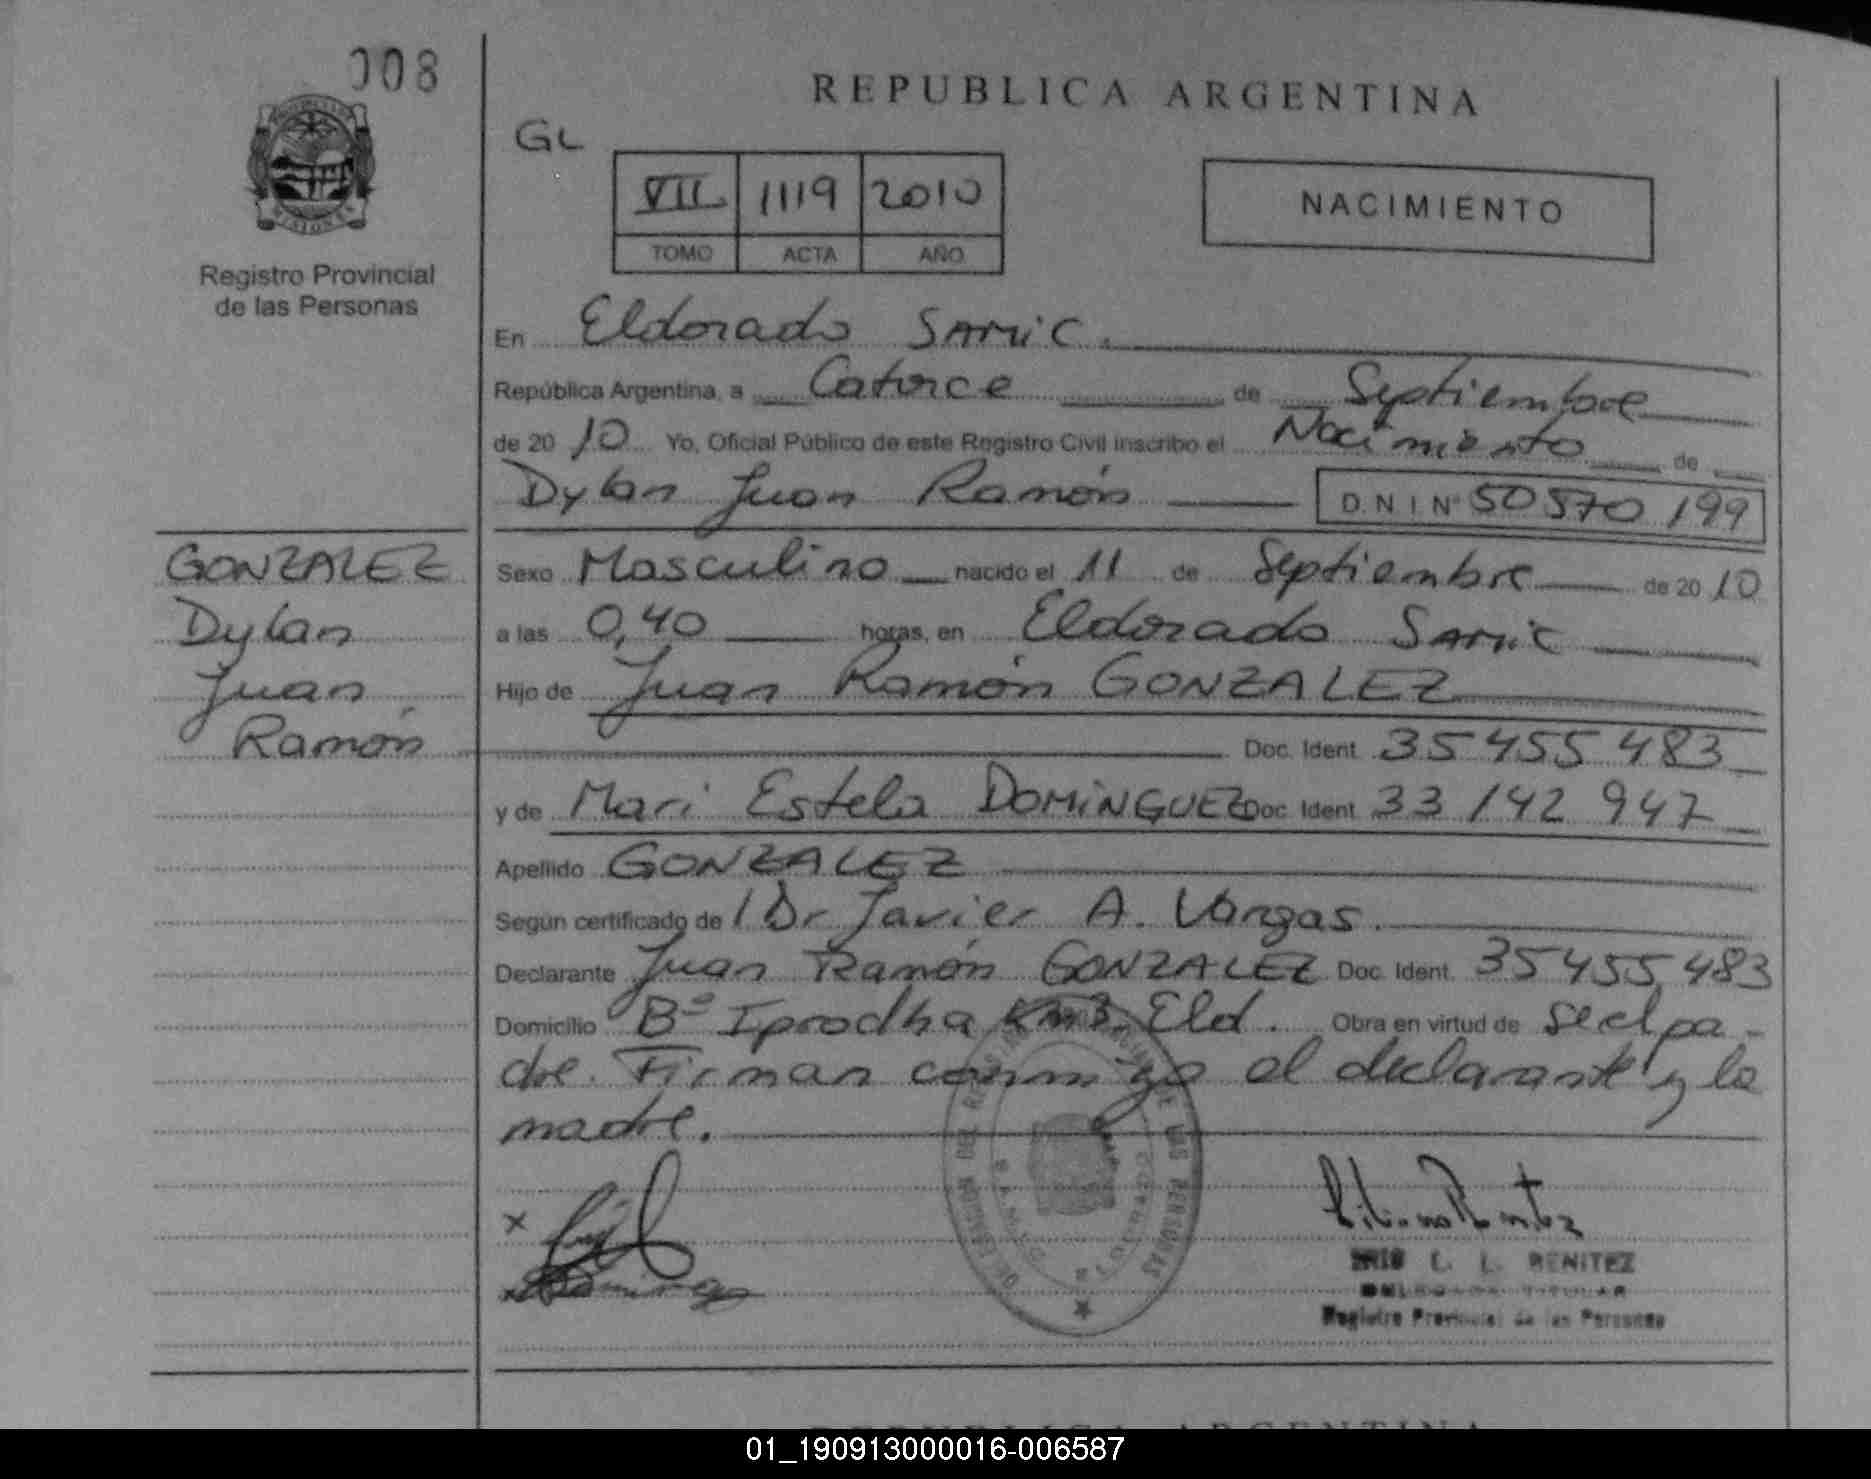 008
REPUBLICA ARGENTINA
GL
VII 1119 2010
TOMO ACTA AÑO
NACIMIENTO
Registro Provincial
de las Personas
En Eldorado SAMIC.
República Argentina, a Catorce de Septiembre
de 2010 Yo, Oficial Público de este Registro Civil inscribo el Nacimiento de
Dylan Juan Ramón D.N.I Nº 50 570 199
GONZALEZ
Dylan
Juan
Ramón
Sexo Masculino nacido el 11 de Septiembre de 2010
a las 0,40 horas, en Eldorado SAMIC
Hijo de Juan Ramón GONZALEZ
Doc. Ident. 35 455 483
y de Mari Estela DOMINGUEZ Doc. Ident. 33 142 947
Apellido GONZALEZ
Según certificado de l Dr Javier A. Vargas.
Declarante Juan Ramón GONZALEZ Doc. Ident. 35 455 483
Domicilio Bº Iprodha Km3. Eld. Obra en virtud de se el pa-
dre. Firman conmigo el declarante y la
madre.
L. L. BENITEZ
Registro Provincial de las Personas
REPUBLICA ARGENTINA
01_190913000016-006587